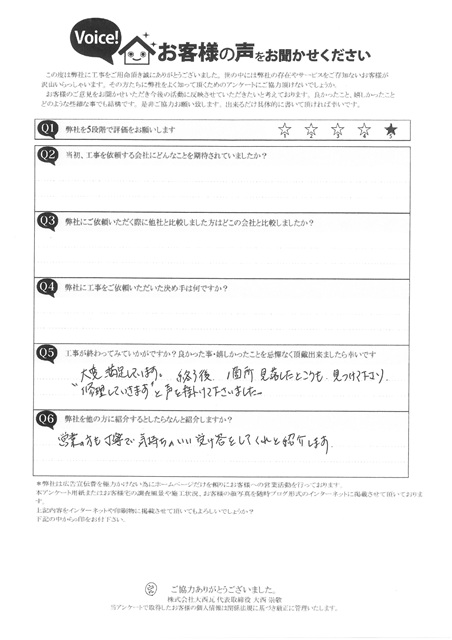 Voice!
お客様の声をお聞かせください
この度は弊社に工事をご用命頂き誠にありがとうございました。世の中には弊社の存在やサービスをご存知ないお客様が
沢山いらっしゃいます。その方たちに弊社をよく知って頂くためのアンケートにご協力頂けないでしょうか。
お客様のご意見をお聞かせいただき今後の活動に反映させていただきたいと考えております。良かったこと、嬉しかったこと
どのような些細な事でも結構です。是非ご協力お願い致します。出来るだけ具体的に書いて頂ければ幸いです。
Q1 弊社を5段階で評価をお願いします
1 2 3 4 5
Q2 当初、工事を依頼する会社にどんなことを期待されていましたか？
Q3 弊社にご依頼いただく際に他社と比較しました方はどこの会社と比較しましたか？
Q4 弊社に工事をご依頼いただいた決め手は何ですか？
Q5 工事が終わってみていかがですか？良かった事・嬉しかったことを忌憚なく頂戴出来ましたら幸いです
大変満足しています。 終了後、1箇所見落したところも、見つけて下さり、
"修理していきます"と声を掛けて下さいました
Q6 弊社を他の方に紹介するとしたらなんと紹介しますか？
営業の方も丁寧で気持ちのいい受け答をしてくれと紹介します。
＊弊社は広告宣伝費を極力かけない為にホームページだけを頼りにお客様への営業活動を行っております。
本アンケート用紙またはお客様宅の調査風景や施工状況、お客様の顔写真を随時ブログ形式のインターネットに掲載させて頂いておりま
す。
上記内容をインターネットや印刷物に掲載させて頂いてもよろしいでしょうか？
下記の中から○印をお付け下さい。
ご協力ありがとうございました。
株式会社大西瓦 代表取締役 大西
当アンケートで取得したお客様の個人情報は関係法規に基づき厳正に管理いたします。